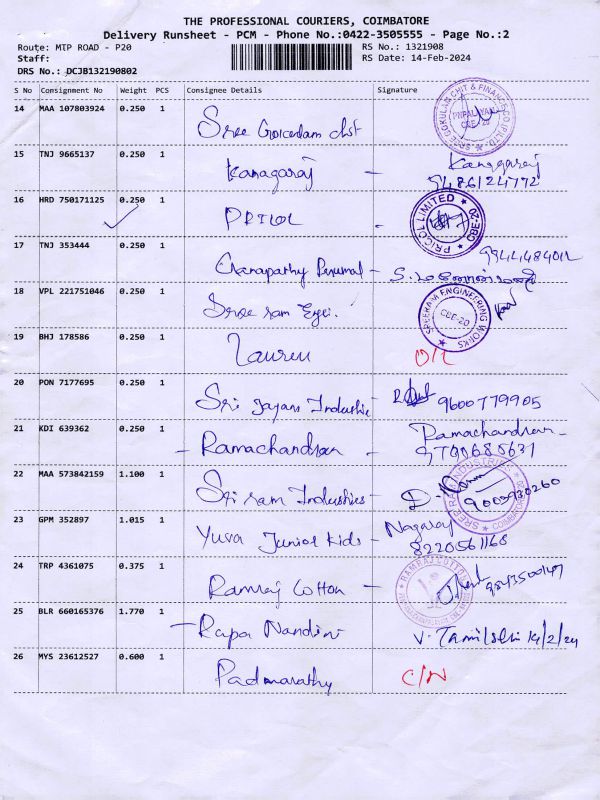 THE PROFESSIONAL COURIERS, COIMBATORE
Delivery Runsheet - PCM - Phone No.:0422-3505555 - Page No.:2
Route: MTP ROAD - P20 RS No.: 1321908
Staff: RS Date: 14-Feb-2024
DRS No.: DCJB132190802
S No Consignment No Weight PCS Consignee Details Signature
14 MAA 107803924 0.250 1
Sree Gokulam chit
SREE GOKULAM CHIT & FINANCE CO (P) LTD CBE-20
15 TNJ 9665137 0.250 1
Kanagaraj - Kanagaraj
9486124772
16 HRD 750171125 0.250 1
PRICOL
PRICOL LIMITED CBE-20
17 TNJ 353444 0.250 1
Ganapathy Perumal - 9944484012
18 VPL 221751046 0.250 1
Sree ram Egi.
SREERAM ENGINEERING WORKS CBE-20
19 BHJ 178586 0.250 1
Lauren
20 PON 7177695 0.250 1
Sri Jayam Industrie 9600779905
21 KDI 639362 0.250 1
- Ramachandran - Ramachandran
9700685631
22 MAA 573842159 1.100 1
Sri ram Industries -
SREE RAM INDUSTRIES COIMBATORE
23 GPM 352897 1.015 1
Yuva Junior Kids - Nagaraj
8220561168
24 TRP 4361075 0.375 1
Ramraj Cotton -
RAMRAJ COTTON
25 BLR 660165376 1.770 1
- Rupa Nandini V. Tamilselvi 14/2/24
26 MYS 23612527 0.600 1
Padmavathy C/N